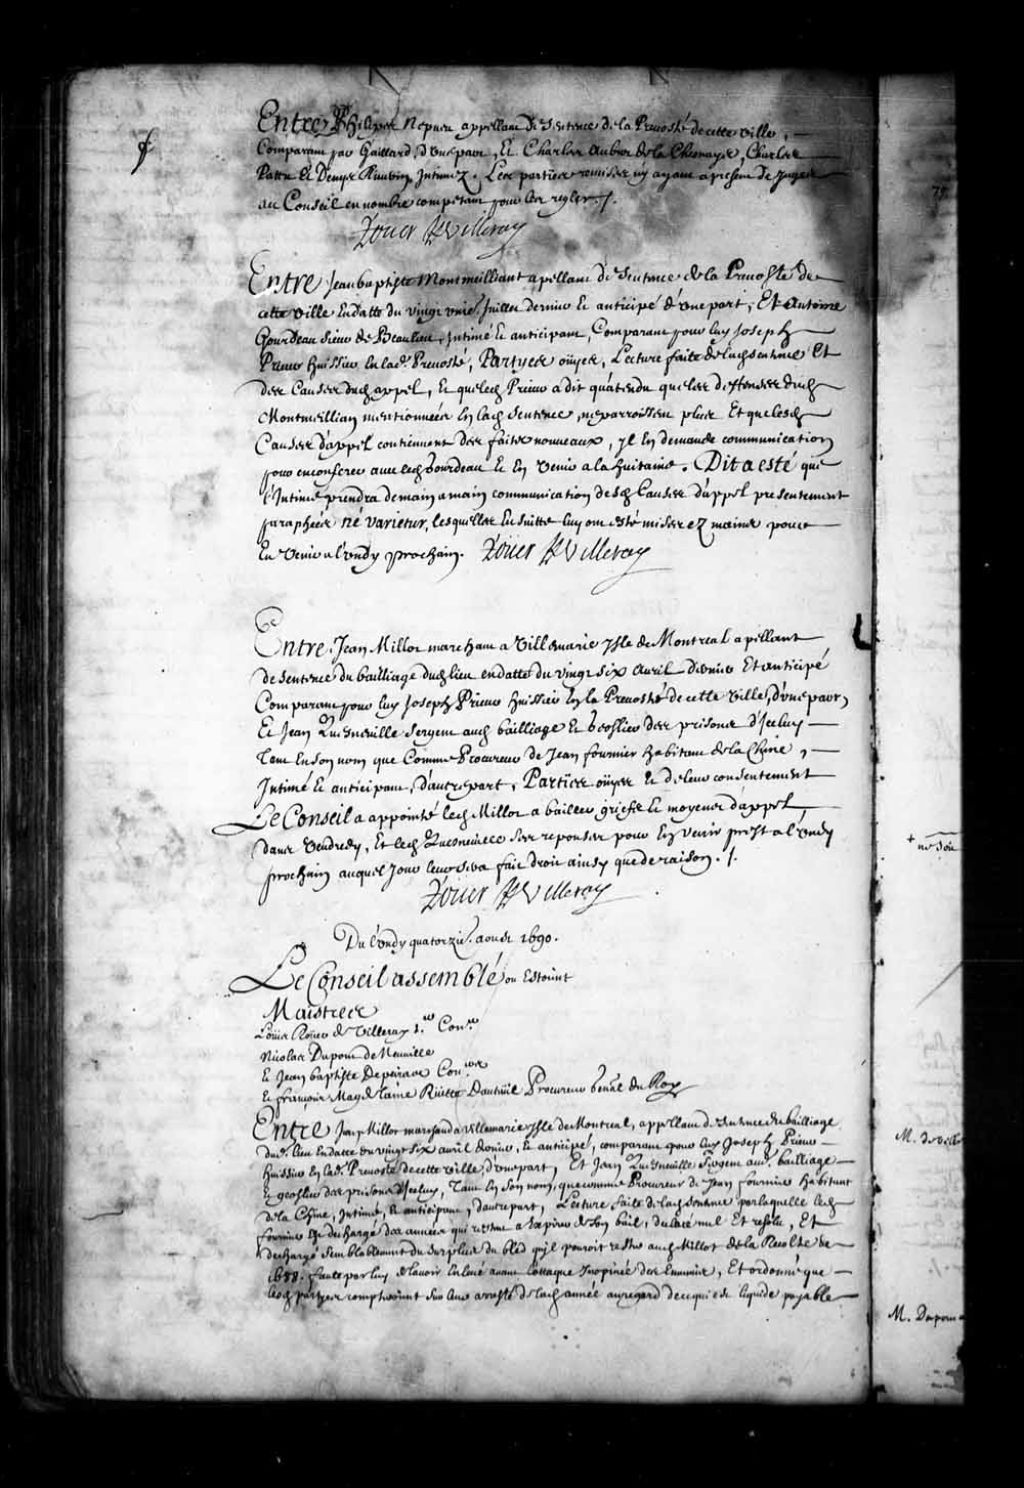 Entre Philippes Nepueu appellant de Sentence de la Preuosté de cette ville,
Comparant par Gaillard, d'une part, Et Charles Aubert de la Chesnaye, Charles
Patu Et Denys Intimez. Les parties remises n'y ayant a present de Juges
au Conseil en nombre competant pour les regler ./.
Roüer de Villeray
Entre Jean baptiste Montmeilliant apellant de Sentence de la Preuosté de
cette ville En datte du vingt vnie. Juillet dernier Et anticipé d'vne part, Et Antoine
Gourdeau Sieur de Beaulieu, Intimé Et anticipant, Comparant pour luy Joseph
Prieur huissier En lad. Preuosté, Partyes oüyes, Lecture faite de lad. sentence Et
des Causes dud. appel, Et que led. Prieur a dit qu'atendu que les deffenses dud.
Montmeillian mentionnées En lad. Sentence, ne parroissent plus Et que lesd.
Causes d'appel contiennent des faits nouueaux, Il En demande communication
pour en conferer auec led. Gourdeau Et En Venir a la huitaine. Dit a esté que
l'Intimé prendra de main a main communication desd. Causes d'appel presentement
paraphées ne varietur, lesquelles En suitte luy ont esté mises ez mains pour
En Venir a Lundy prochain. Roüer de Villeray
Entre Jean Millot marchant a Villemarie Isle de Montreal apellant
de Sentence du bailliage dud. lieu en datte du vingt six auril dernier Et anticipé
Comparant pour luy Joseph Prieur huissier En la Preuosté de cette ville, d'vne part,
Et Jean Quesneuille Sergent aud. bailliage Et Geollier des prisons d'Iceluy
tant En son nom que Comme Procureur de Jean fournier habitant de la Chine,
Intimé Et anticipant, d'autre part, Parties oüyes Et de leur consentement
Le Conseil a appointé led. Millot a bailler griefs Et moyens d'appel
dans Vendredy, Et led. Quesneuille ses reponses pour En venir prest a Lundy
prochain auquel Jour leur sera fait droit ainsy que de raison ./.
Roüer de Villeray
Du Lundy quatorzie. aoust 1690.
Le Conseil assemblé ou Estoient
Maistres
Loüis Roüer de Villeray 1.er Con.er
Nicolas Dupont de Neuuille
Et Jean baptiste Depeiras Con.ers
Et françois Magdelaine Rüette Dauteüil Procureur General du Roy
Entre Jean Millot marchand a Villemarie Isle de Montreal, appellant de sentence du bailliage
dud. lieu En datte du vingt six auril dernier, Et anticipé, comparant pour luy Joseph Prieur
huissier En lad. Preuosté de cette ville, d'vne part, Et Jean Quesneuille Sergent aud. bailliage
Et geollier des prisons d'Iceluy, Tant En son nom, que comme Procureur de Jean fournier habitant
de la Chine, Intimé, Et anticipant, d'autre part, Lecture faite de lad. sentence par laquelle led.
fournier Est dechargé des années qui restent a expirer de son bail, declaré nul Et resolu, Et
dechargé semblablement du surplus du bled qu'il pouroit rester aud. Millot de la Recolte de
1688. faute par luy de l'auoir Enleué auant l'attaque Inopinée des Ennemis, Et ordonné que
lesd. partyes compteroient sur leur arresté de lad. année au regard de ce qui est liquide payable
+ ne
M. de vill
M. Dupont